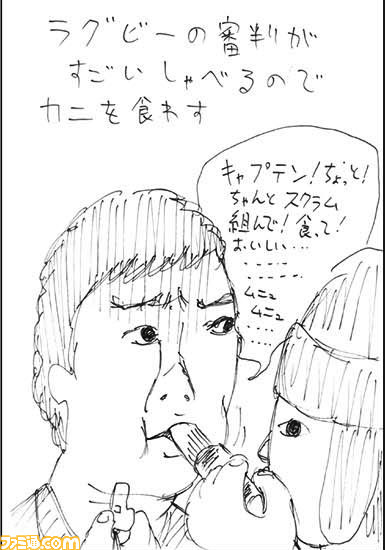 ラグビーの審判が
すごいしゃべるので
カニを食わす
キャプテン!ちょっと!
ちゃんとスクラム
組んで!食って!
おいしい…
ムニュ
ムニュ
ファミ通.com